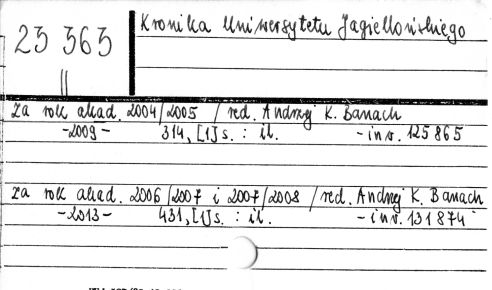 23 363
II
Kronika Uniwersytetu Jagiellońskiego
za rok akad. 2004/2005 / red. Andrzej K. Banach
-2009- 314, [1]s. : il. - inw. 125865
za rok akad. 2006/2007 i 2007/2008 / red. Andrzej K. Banach
-2013- 431, [1]s. : il. - inw. 131874